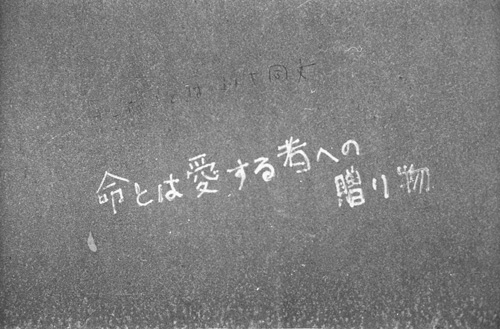 命とは愛する者への
贈り物